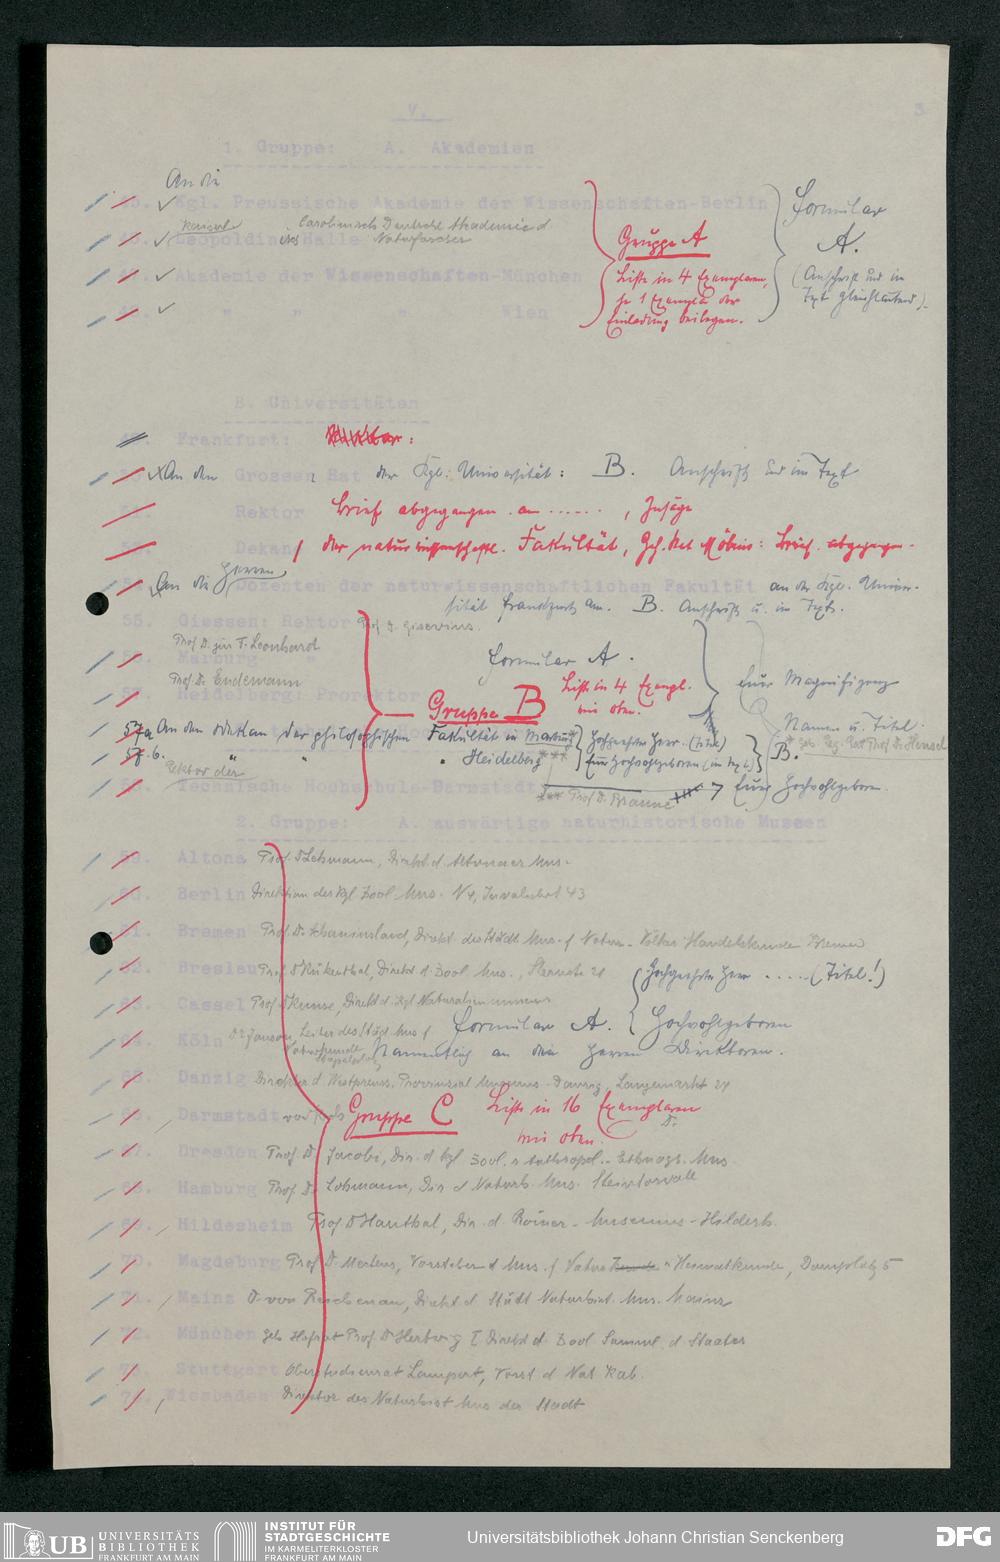 V.
3
1. Gruppe: A. Akademien
An die
Kgl. Preussische Akademie der Wissenschaften-Berlin
Formular
Kaiserl. Carolinisch Deutsche Akademie d
Leopoldin. Halle Naturforscher
A.
Gruppe A
Akademie der Wissenschaften-München
Liste in 4 Exemplaren,
(Anschrift und im
je 1 Exemplar der
Text gleichlautend).
" " " Wien
Einladung beilegen.
B. Universitäten
Frankfurt:
An den Grossen Rat der Kgl. Universität: B. Anschrift und im Text
Rektor Brief abgegangen am ......, Zusage
Dekan der naturwissenschaftl. Fakultät, Geh. Rat Möbius: Brief abgegangen.
An die Herren Dozenten der naturwissenschaftlichen Fakultät an der Kgl. Univer-
sität Frankfurt am. B. Anschrift u. im Text.
55. Giessen: Rektor Prof. D. Gisevius.
Prof D. jur F. Leonhard
Marburg "
Formular A.
Prof. Dr. Endemann
57. Heidelberg: Prorektor
Liste in 4 Exempl.
Euer Magnifizenz
Gruppe B wie oben.
Namen u. Titel
57a An den Dekan der philosophischen Fakultät in Marburg* Hochgeehrter Herr (Titel)
B.
* Geh. Reg. Rat Prof. Dr. Hensel
57 b. " " Heidelberg** Euer Hochwohlgeboren (im Text)
Rektor der
58. Technische Hochschule-Darmstadt
*** Prof D. Braune
Euer Hochwohlgeboren.
2. Gruppe: A. auswärtige naturhistorische Museen
59. Altona Prof. D Lehmann, Direkt. d. Altonaer Mus.
60. Berlin Direktion des Kgl Zool. Mus. N 4, Invalidenst 43
61. Bremen Prof. D. Schauinsland, Direkt. des Städt. Mus. f Natur- Völker Handelskunde Bremen
62. Breslau Prof. D Kükenthal, Direkt. d. Zool. Mus., Sternstr 21
Hochgeehrter Herr ..... (Titel!)
63. Cassel Prof. D Kunze, Direkt d. Kgl Naturalienmuseums
64. Köln Dr Janson, Leiter des Städt. Mus f
Formular A. Hochwohlgeboren
Naturkunde
Stapelhaus
Namentlich an die Herren Direktoren.
65. Danzig Direktor d. Westpreuss. Provinzial Museums-Danzig, Langemarkt 24
66. Darmstadt
Gruppe C Liste in 16 Exemplaren
wie oben.
67. Dresden Prof. D. Jacobi, Dir. d Kgl Zool. u Anthropol.- Ethnogr. Mus.
68. Hamburg Prof. D. Lohmann, Dir d Naturh. Mus. Steintorwall
69. Hildesheim Prof D Hauthal, Dir. d. Römer-Museums-Hildesh.
70. Magdeburg Prof D. Mertens, Vorsteher d Mus. f Natur u Heimatkunde, Domplatz 5
71. Mainz D. von Reichenau, Direkt d Städt Naturhist. Mus. Mainz
72. München Geh Hofrat Prof. D Hertwig I Direkt d. Zool Samml. d Staates
73. Stuttgart Oberstudienrat Lampert, Vorst d Nat Kab.
74. Wiesbaden Direktor des Naturhist Mus der Stadt
UB UNIVERSITÄTS
BIBLIOTHEK
FRANKFURT AM MAIN
INSTITUT FÜR
STADTGESCHICHTE
IM KARMELITERKLOSTER
FRANKFURT AM MAIN
Universitätsbibliothek Johann Christian Senckenberg
DFG